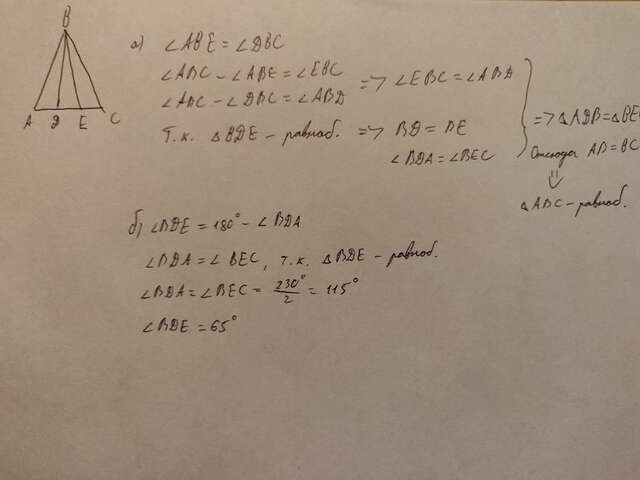 B
A D E C
a) ∠ABE = ∠DBC
∠ABC - ∠ABE = ∠EBC
∠ABC - ∠DBC = ∠ABD
=> ∠EBC = ∠ABD
Т.к. △BDE - равноб. => BD = BE
∠BDA = ∠BEC
=> △ADB = △BEC
Отсюда AB = BC
⇓
△ABC - равноб.
б) ∠BDE = 180° - ∠BDA
∠BDA = ∠BEC, т.к. △BDE - равноб.
∠BDA = ∠BEC = 230°/2 = 115°
∠BDE = 65°